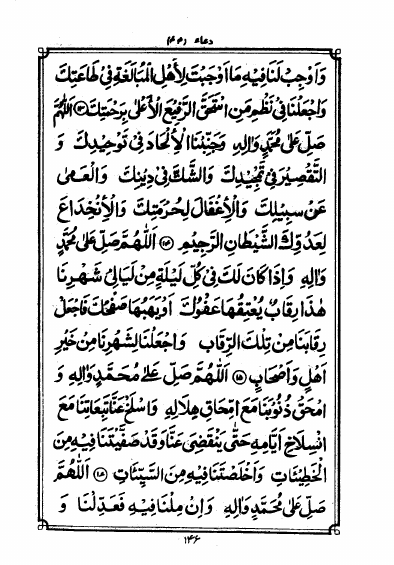 دعاء (۴۴)
وَاَوْجِبْ لَنَا فِیْهِ مَا اَوْجَبْتَ لِاَهْلِ الْمُبَالَغَةِ فِیْ طَاعَتِكَ
وَاجْعَلْنَا فِیْ نَظْمِ مَنِ اسْتَحَقَّ الرَّفِیْعَ الْاَعْلٰی بِرَحْمَتِكَ اَللّٰهُمَّ
صَلِّ عَلٰی مُحَمَّدٍ وَاٰلِهٖ وَجَنِّبْنَا الْاِلْحَادَ فِیْ تَوْحِیْدِكَ وَ
التَّقْصِیْرَ فِیْ تَمْجِیْدِكَ وَالشَّكَّ فِیْ دِیْنِكَ وَالْعَمٰی
عَنْ سَبِیْلِكَ وَالْاِغْفَالَ لِحُرْمَتِكَ وَالْاِنْخِدَاعَ
لِعَدُوِّكَ الشَّیْطَانِ الرَّجِیْمِ اَللّٰهُمَّ صَلِّ عَلٰی مُحَمَّدٍ
وَاٰلِهٖ وَاِذَا كَانَ لَكَ فِیْ كُلِّ لَیْلَةٍ مِنْ لَیَالِیْ شَهْرِنَا
هٰذَا رِقَابٌ یُعْتِقُهَا عَفْوُكَ اَوْ یَهَبُهَا صَفْحُكَ فَاجْعَلْ
رِقَابَنَا مِنْ تِلْكَ الرِّقَابِ وَاجْعَلْنَا لِشَهْرِنَا مِنْ خَیْرِ
اَهْلٍ وَاَصْحَابٍ اَللّٰهُمَّ صَلِّ عَلٰی مُحَمَّدٍ وَاٰلِهٖ وَ
امْحَقْ ذُنُوْبَنَا مَعَ امِّحَاقِ هِلَالِهٖ وَاسْلَخْ عَنَّا تَبِعَاتِنَا مَعَ
انْسِلَاخِ اَیَّامِهٖ حَتّٰی یَنْقَضِیَ عَنَّا وَقَدْ صَفَّیْتَنَا فِیْهِ مِنَ
الْخَطِیْئَاتِ وَاَخْلَصْتَنَا فِیْهِ مِنَ السَّیِّئَاتِ ۝۱۸ اَللّٰهُمَّ
صَلِّ عَلٰی مُحَمَّدٍ وَاٰلِهٖ وَاِنْ مِلْنَا فِیْهِ فَعَدِّلْنَا وَ
۱۴۶